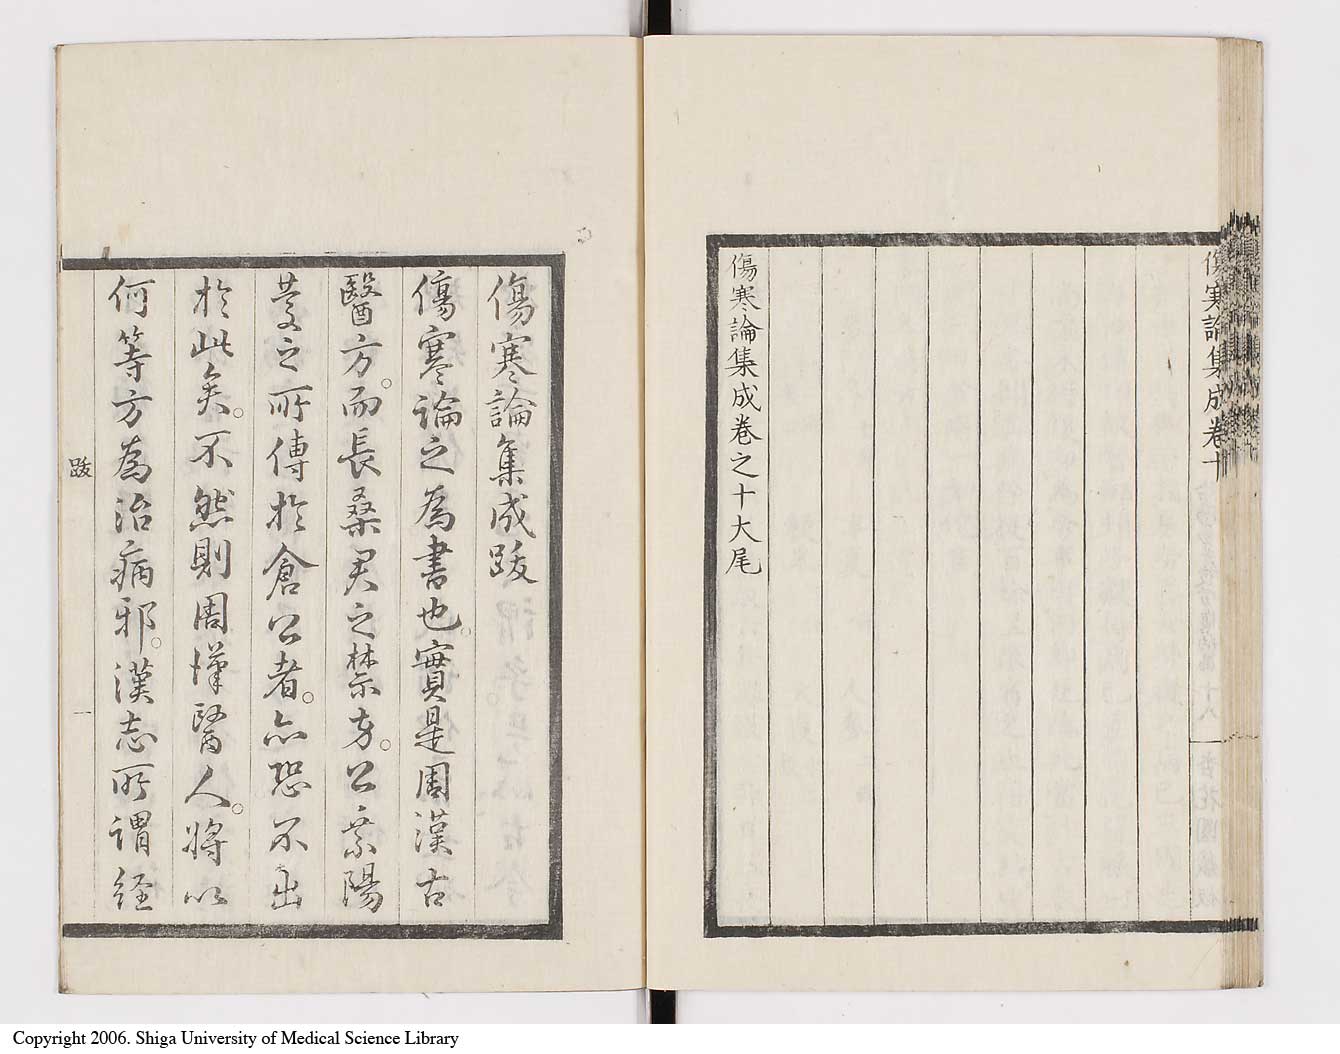 傷寒論集成卷十
傷寒論集成卷之十大尾
傷寒論集成跋
傷寒論之為書也。實是周漢古
醫方。而長桑君之禁方。公乘陽
慶之所傳於倉公者。亦恐不出
於此矣。不然則周漢醫人。將以
何等方為治病邪。漢志所謂経
跋
一
Copyright 2006. Shiga University of Medical Science Library